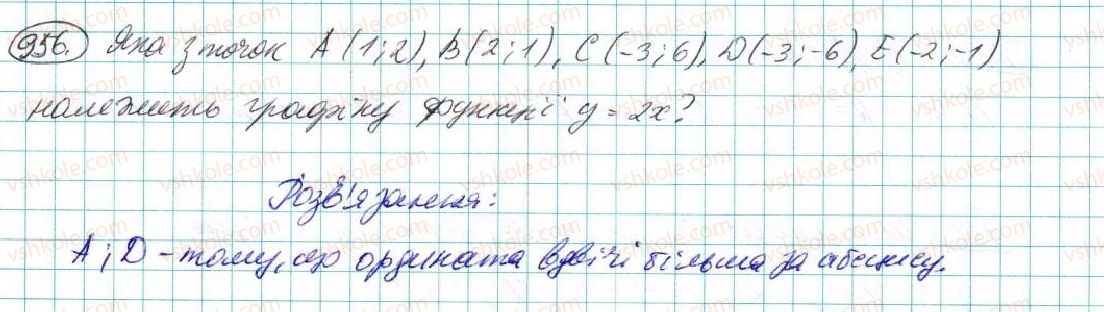 956. Яка з точок A(1;2), B(2;1), C(-3;6), D(-3;-6), E(-2;-1)
належить графіку функції y = 2x?
Розв'язання:
A; D - тому, що ордината вдвічі більша за абсцису.